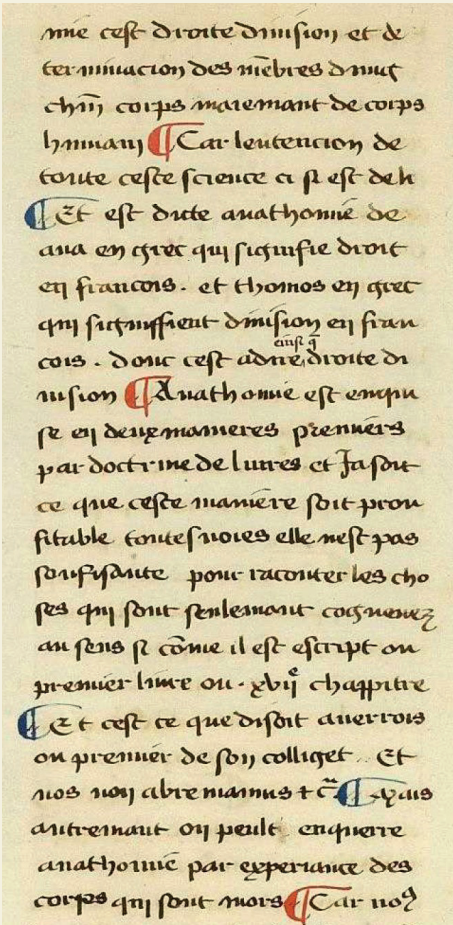 mie cest droite diuision et de
terminacion des mēbres dung
chūn corps maiemant de corps
humain ¶ Car lentencion de
toute ceste science ci si est de li
¶ Et est dicte anathomie de
ana en grec qui signifie droit
en francois . et thomos en grec
qui signiffient diuision en fran
cois . donc cest adire einsi q̄ droite di
uision ¶ Anathomie est enqui
se en deux manieres premiers
par doctrine de liures et Ja soit
ce que ceste maniere soit prou
fitable toutesuoies elle nest pas
soufisante pour raconter les cho
ses qui sont seulemant cogneuez
au sens si cōme il est escript ou
premier liure ou . xvijᵉ chappitre
¶ Et cest ce que disoit auerrois
ou premier de son colliget . Et
nos non abreniamus
¶ Mais
autremant on peult enquerre
anathomie par experiance des
corps qui sont mors ¶ Car noꝰ